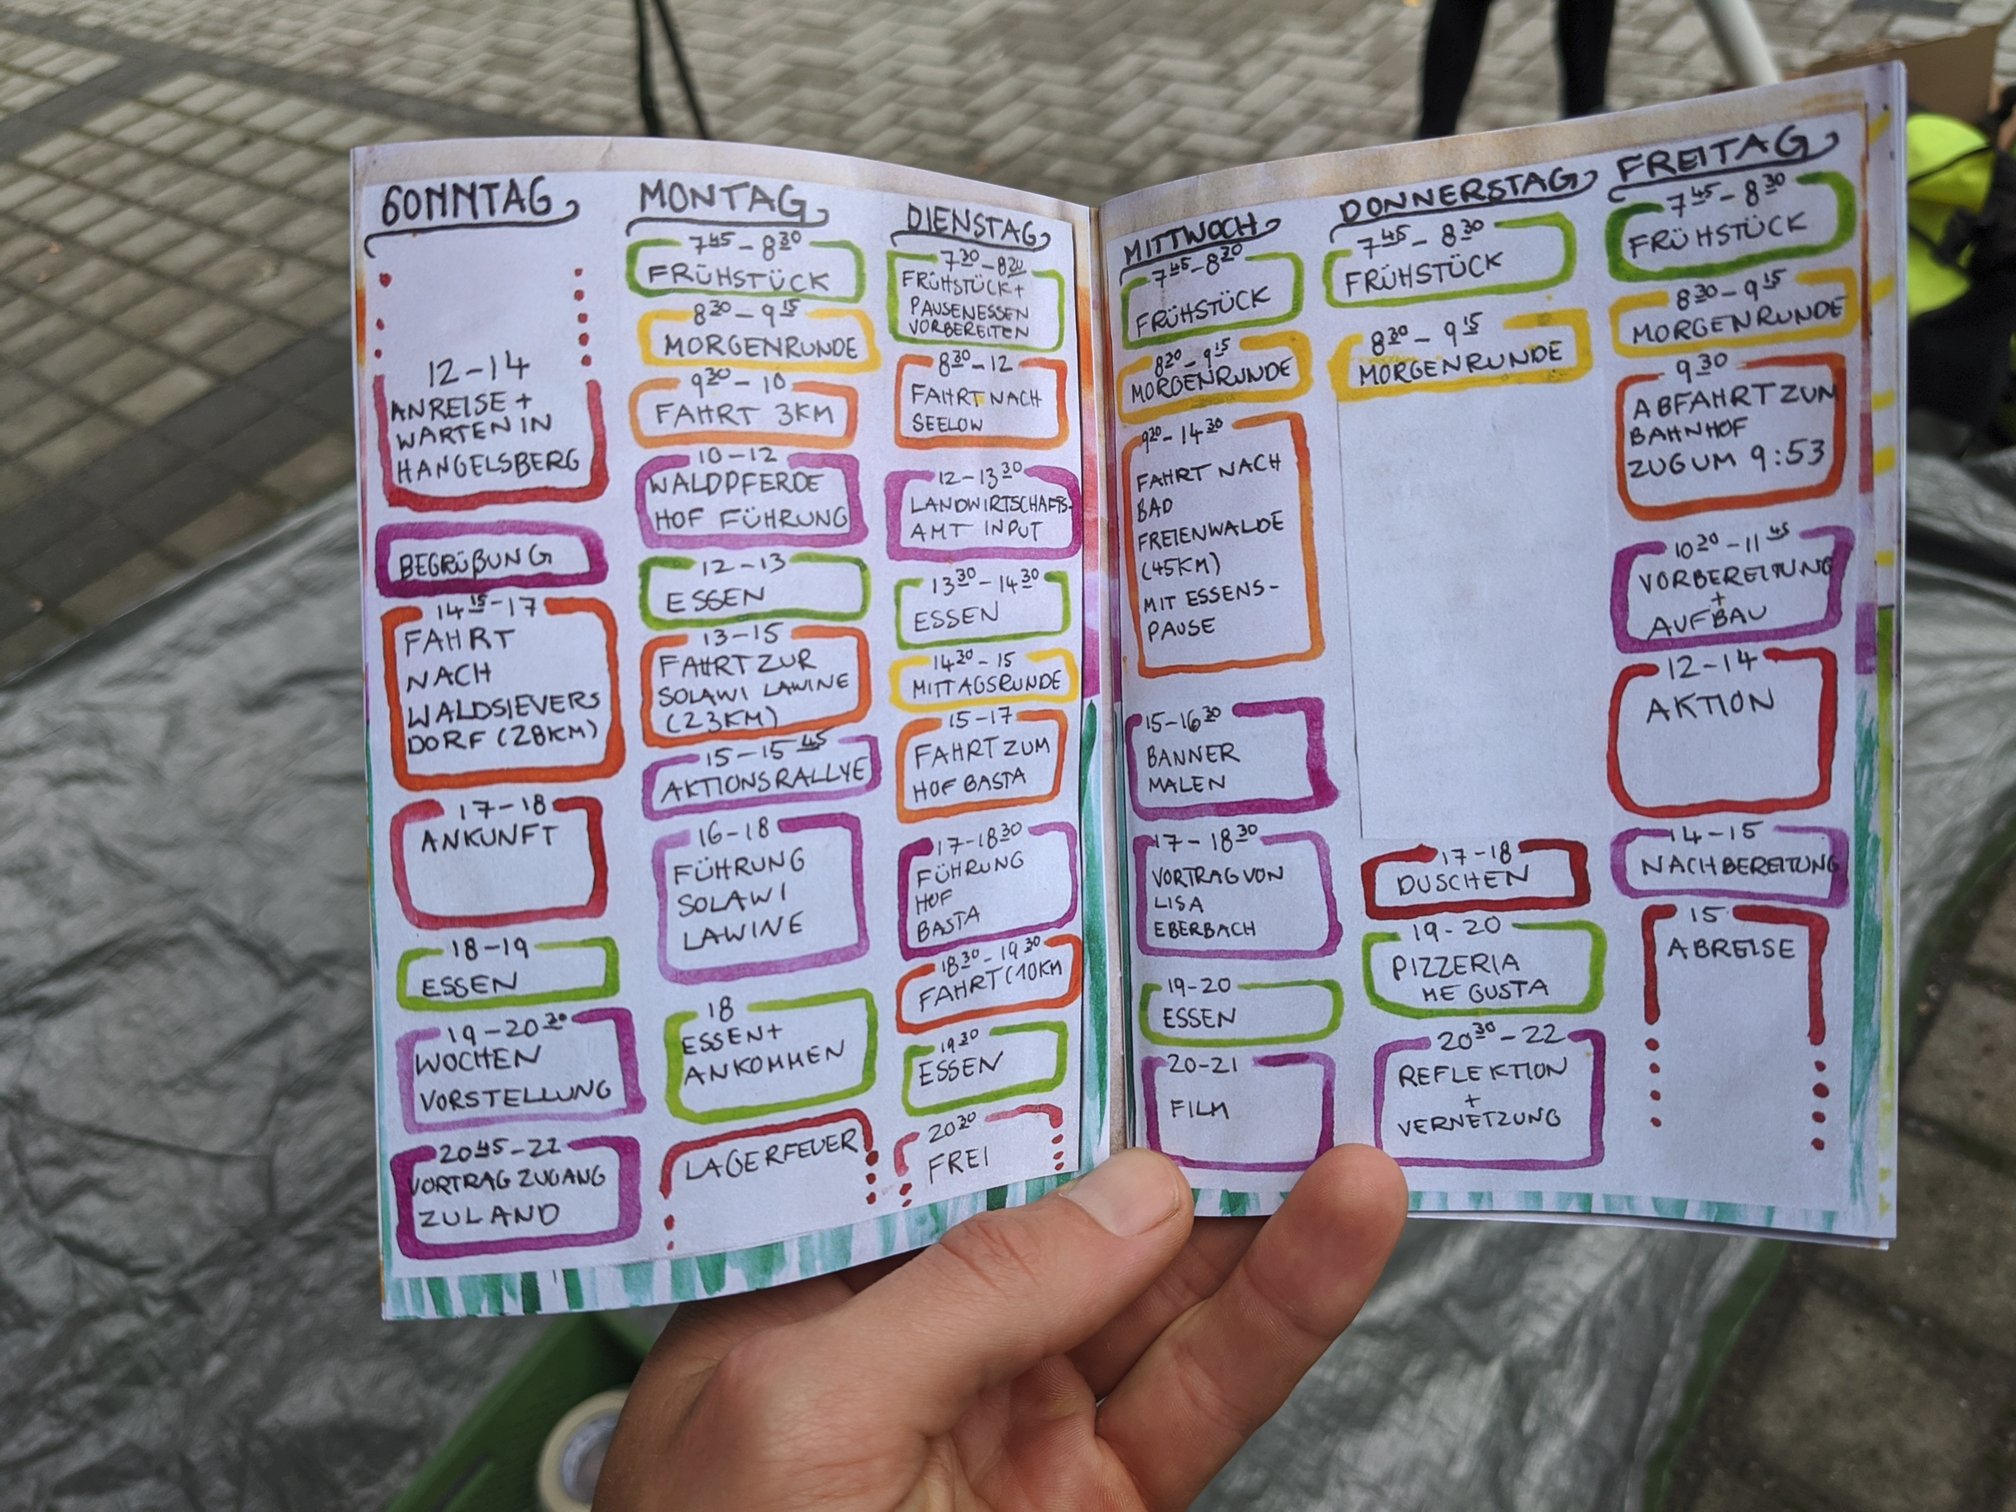 SONNTAG
12-14
ANREISE +
WARTEN IN
HANGELSBERG
BEGRÜßUNG
14 15-17
FAHRT
NACH
WALDSIEVERS
DORF (28KM)
17-18
ANKUNFT
18-19
ESSEN
19-20 30
WOCHEN
VORSTELLUNG
20 45-22
VORTRAG ZUGANG
ZU LAND
MONTAG
7 45-8 30
FRÜHSTÜCK
8 30-9 15
MORGENRUNDE
9 30-10
FAHRT 3KM
10-12
WALDPFERDE
HOF FÜHRUNG
12-13
ESSEN
13-15
FAHRT ZUR
SOLAWI LAWINE
(23KM)
15-15 45
AKTIONSRALLYE
16-18
FÜHRUNG
SOLAWI
LAWINE
18
ESSEN+
ANKOMMEN
LAGERFEUER
DIENSTAG
7 30-8 30
FRÜHSTÜCK+
PAUSENESSEN
VORBEREITEN
8 30-12
FAHRT NACH
SEELOW
12-13 30
LANDWIRTSCHAFTS-
AMT INPUT
13 30-14 30
ESSEN
14 30-15
MITTAGSRUNDE
15-17
FAHRT ZUM
HOF BASTA
17-18 30
FÜHRUNG
HOF
BASTA
18 30-19 30
FAHRT (10KM
19 30
ESSEN
20 30
FREI
MITTWOCH
7 45-8 30
FRÜHSTÜCK
8 30-9 15
MORGENRUNDE
9 30-14 30
FAHRT NACH
BAD
FREIENWALDE
(45KM)
MIT ESSENS-
PAUSE
15-16 30
BANNER
MALEN
17-18 30
VORTRAG VON
LISA
EBERBACH
19-20
ESSEN
20-21
FILM
DONNERSTAG
7 45-8 30
FRÜHSTÜCK
8 30-9 15
MORGENRUNDE
17-18
DUSCHEN
19-20
PIZZERIA
ME GUSTA
20 30-22
REFLEKTION
+
VERNETZUNG
FREITAG
7 45-8 30
FRÜHSTÜCK
8 30-9 15
MORGENRUNDE
9 30
ABFAHRT ZUM
BAHNHOF
ZUG UM 9:53
10 30-11 45
VORBEREITUNG
+
AUFBAU
12-14
AKTION
14-15
NACHBEREITUNG
15
ABREISE